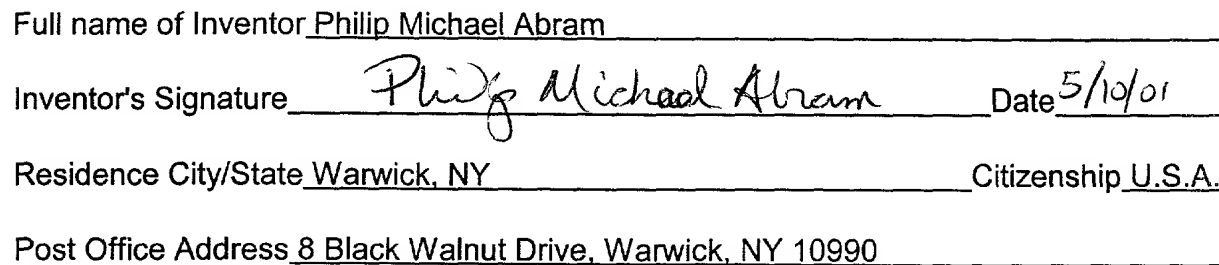 Full name of Inventor Philip Michael Abram
Inventor's Signature Philip Michael Abram Date 5/10/01
Residence City/State Warwick, NY Citizenship U.S.A.
Post Office Address 8 Black Walnut Drive, Warwick, NY 10990